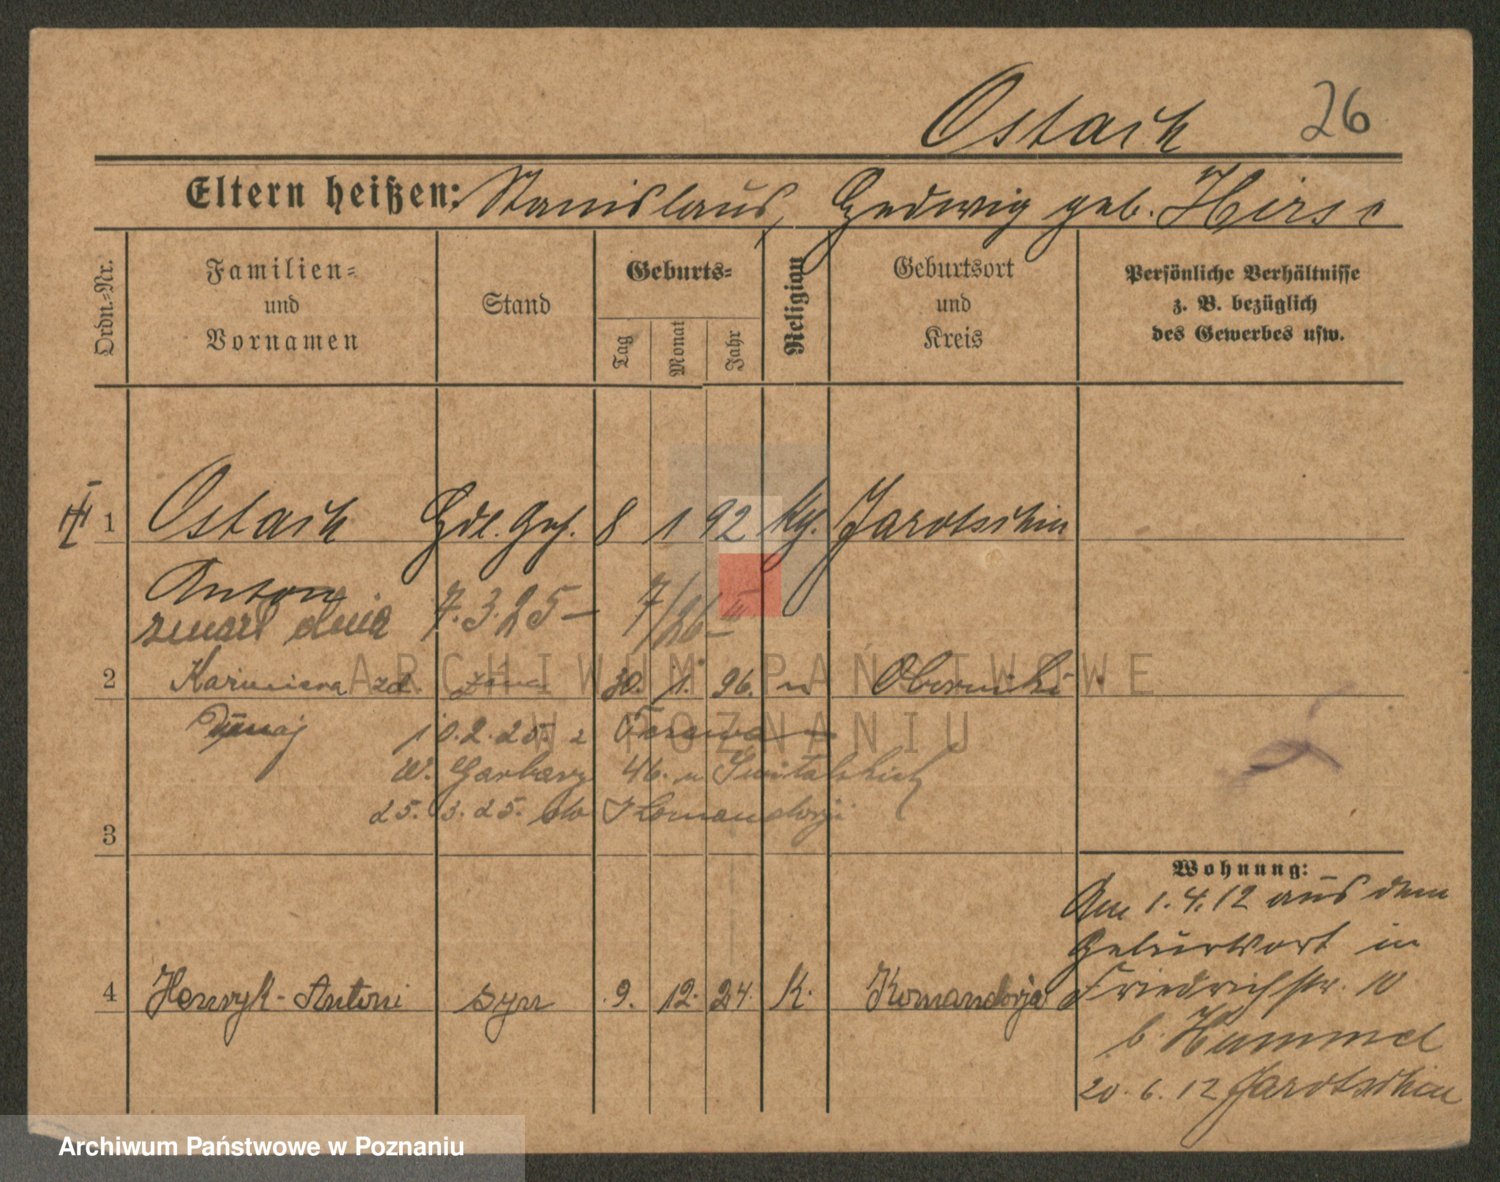 Ostach 26
Eltern heißen: Stanislaus, Hedwig geb. Hirsc
Ordn.=Nr.
Familien=
und
Vornamen
Stand
Geburts=
Tag
Monat
Jahr
Religian
Geburtsort
und
Kreis
Persönliche Verhältnisse
z. B. bezüglich
des Gewerbes usw.
1 Ostach Hdl. Geh. 8 1 92 kth. Jarotschin
Anton
zmarł dnia 7.3.25 – 7/26
2 Kazimiera zd. żona 30. 1. 96. " Oborniki
Dynaj 10.2.25. z
W. Garbary 46. u
25. 3. 25. do Komandorji
3
Wohnung:
Am 1.4.12 aus dem
Geburtsort in
Friedrichstr. 10
b. Hummel
20. 6. 12 Jarotschin
4 Henryk-Antoni syn 9. 12. 24. K. Komandorja
ARCHIWUM PAŃSTWOWE
W POZNANIU
Archiwum Państwowe w Poznaniu